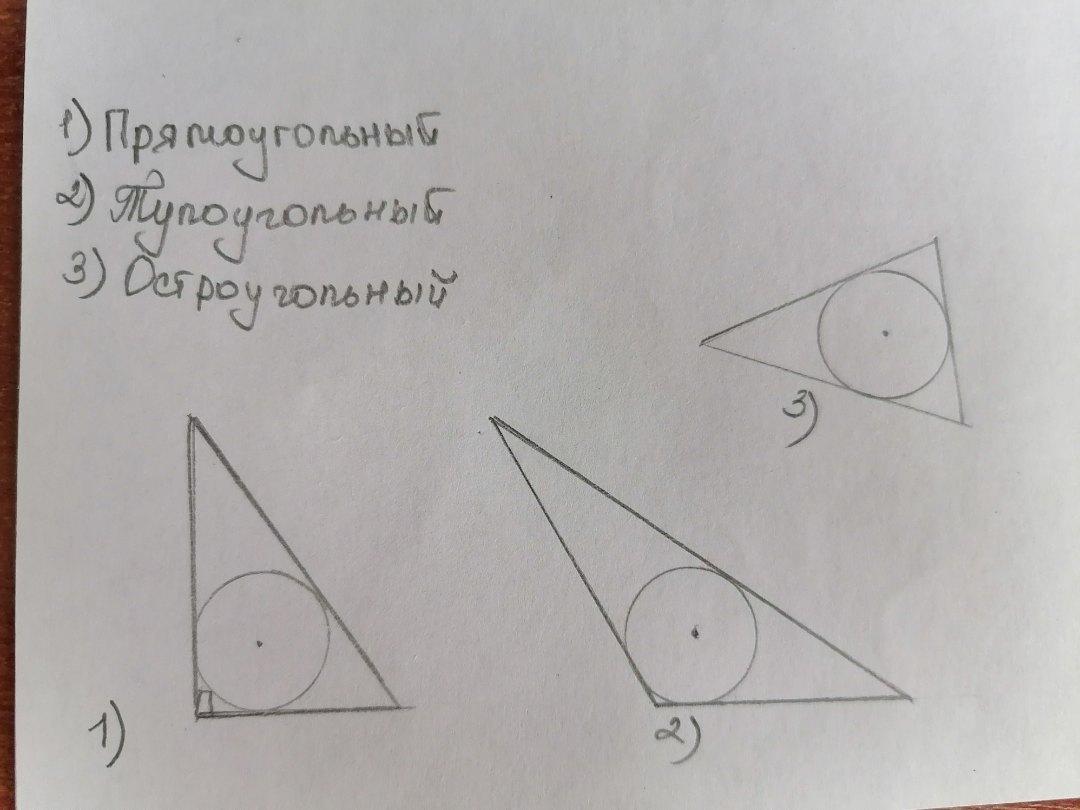 1) Прямоугольный
2) Тупоугольный
3) Остроугольный
3)
1)
2)